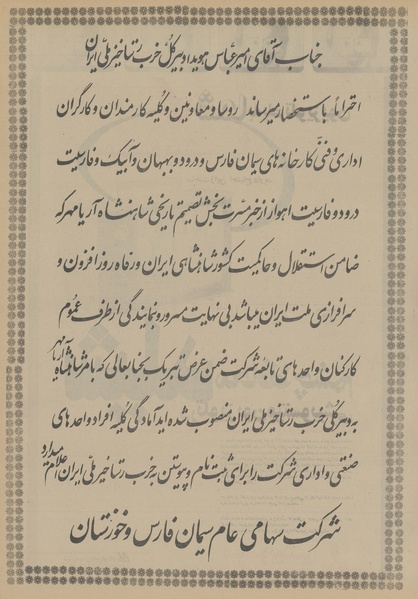 جناب آقای امیرعباس هویدا دبیرکل حزب رستاخیز ملی ایران
احتراماً باستحضار میرساند روسا و معاونین و کلیه کارمندان و کارگران
اداری و فنی کارخانه های سیمان فارس و درود و بهبهان و آبیک و فارسیت
درود و فارسیت اهواز از خبر مسرت بخش تصمیم تاریخی شاهنشاه آریامهر که
ضامن استقلال و حاکمیت کشور شاهنشاهی ایران و رفاه روزافزون و
سرافرازی ملت ایران میباشد بی نهایت مسرور و بنمایندگی از طرف عموم
کارکنان واحدهای تابعه شرکت ضمن عرض تبریک بجنابعالی که بامر شاهنشاه آریامهر
به دبیر کلی حزب رستاخیز ملی ایران منصوب شده اید آمادگی کلیه افراد واحدهای
صنعتی و اداری شرکت را برای ثبت نام و پیوستن به حزب رستاخیز ملی ایران اعلام میدارد
شرکت سهامی عام سیمان فارس و خوزستان